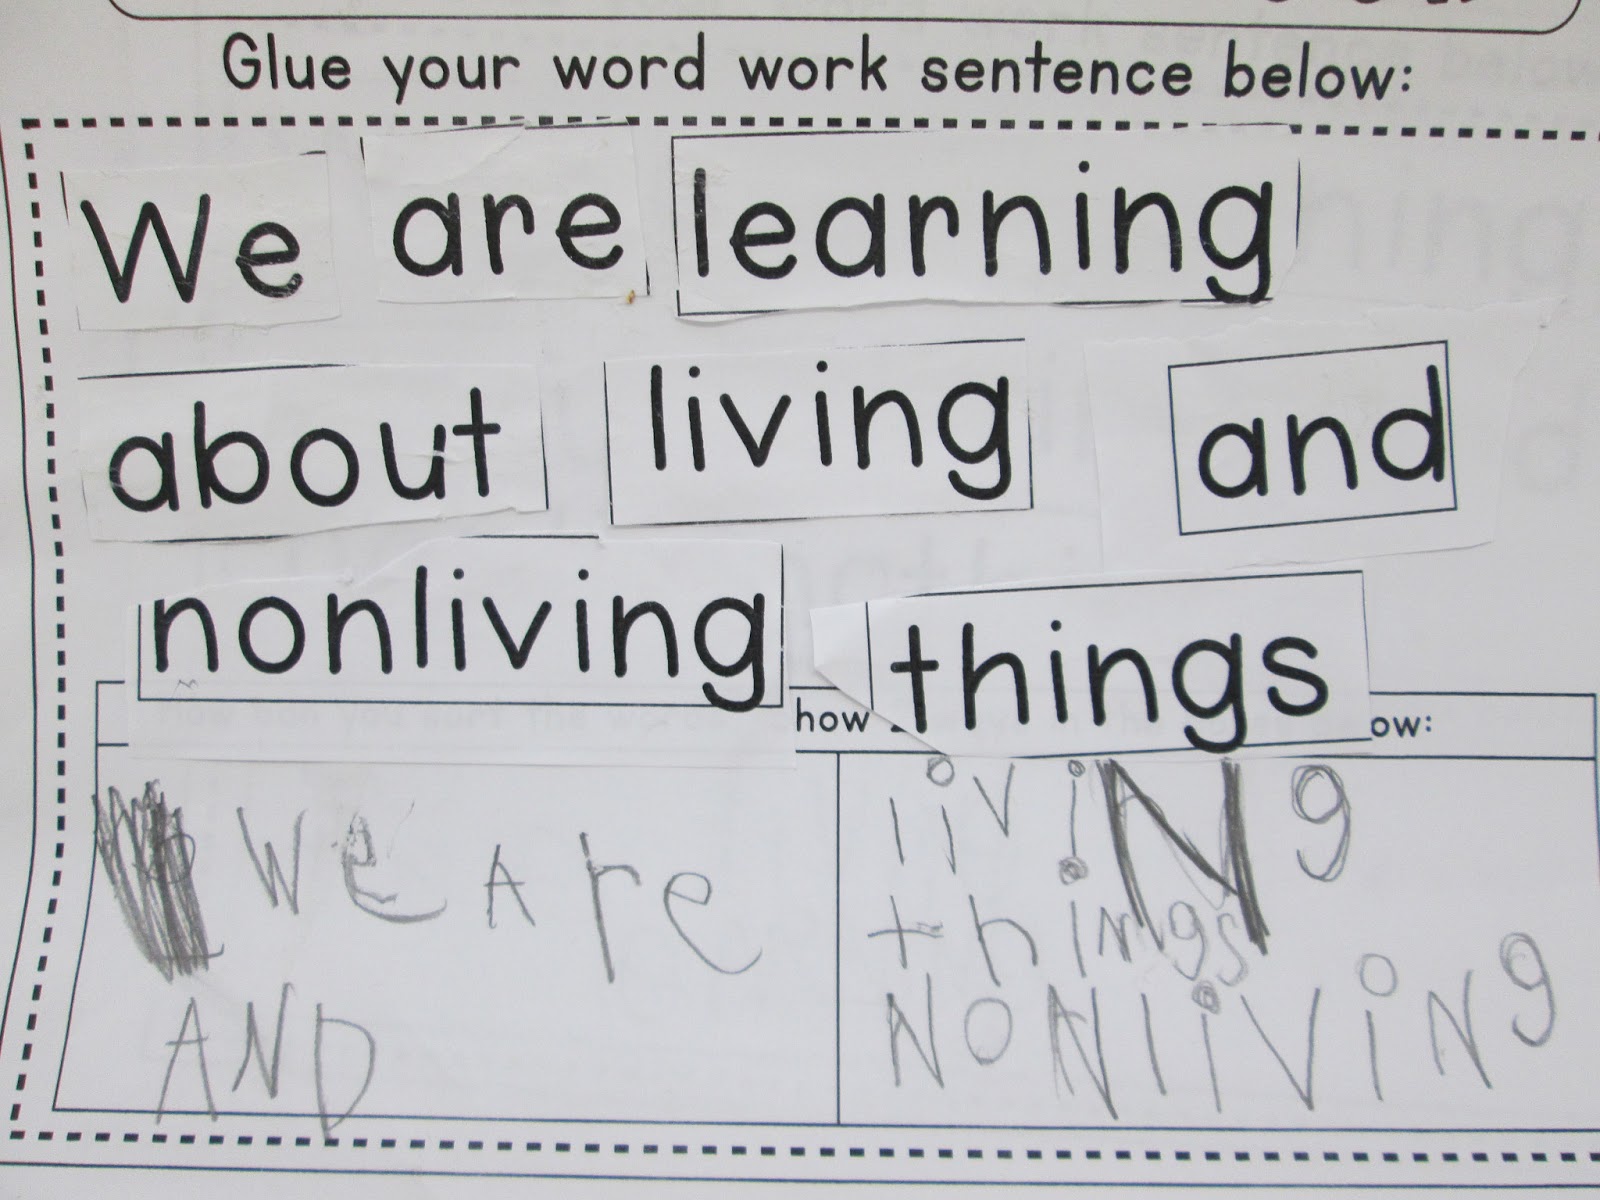 Glue your word work sentence below:
We are learning
about living and
nonliving things
how
ow:
We Are
AND
liviNg
things
NONliViNg